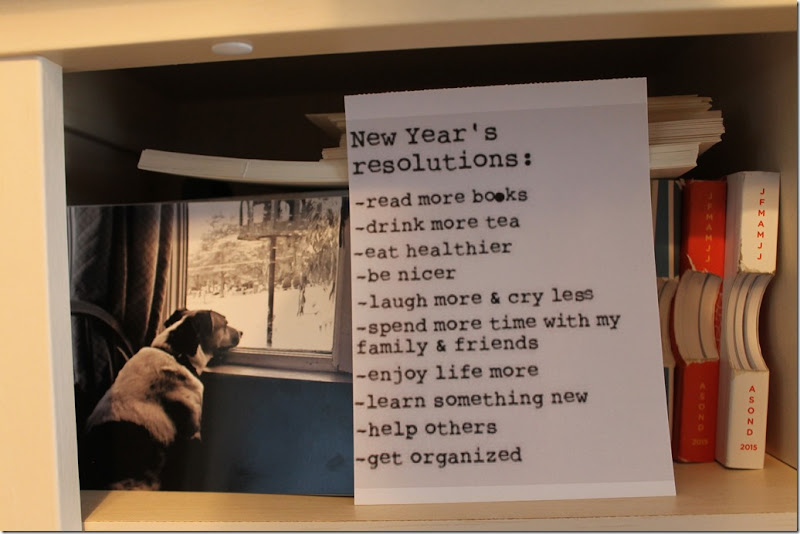 New Year's
resolutions:
-read more books
-drink more tea
-eat healthier
-be nicer
-laugh more & cry less
-spend more time with my
family & friends
-enjoy life more
-learn something new
-help others
-get organized
J F M A M J J
A S O N D
2015
J F M A M J J
A S O N D
2015